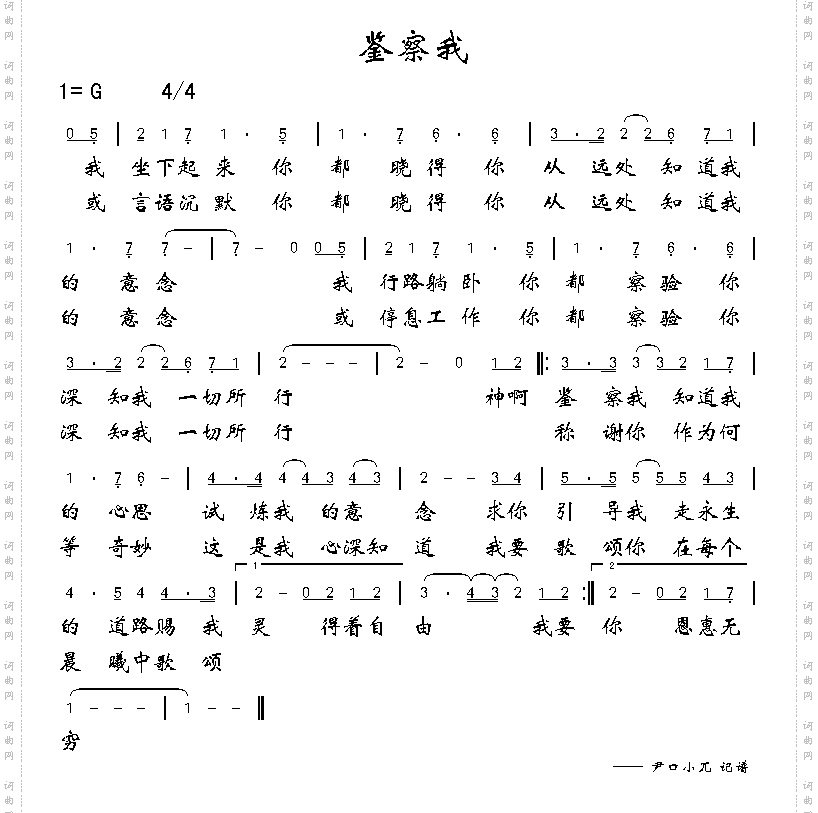 鉴察我
1= G 4/4
0 5 | 2 1 7 1 · 5 | 1 · 7 6 · 6 | 3 · 2 2 2 6 7 1 |
我 坐下起 来 你 都 晓 得 你 从 远处 知 道我
或 言语沉 默 你 都 晓 得 你 从 远处 知 道我
1 · 7 7 – | 7 – 0 0 5 | 2 1 7 1 · 5 | 1 · 7 6 · 6 |
的 意 念 我 行路躺 卧 你 都 察 验 你
的 意 念 或 停息工 作 你 都 察 验 你
3 · 2 2 2 6 7 1 | 2 – – – | 2 – 0 1 2 ‖: 3 · 3 3 3 2 1 7 |
深 知我 一切所 行 神啊 鉴 察我 知道我
深 知我 一切所 行 称 谢你 作为何
1 · 7 6 – | 4 · 4 4 4 3 4 3 | 2 – – 3 4 | 5 · 5 5 5 5 4 3 |
的 心思 试 炼我 的意 念 求你 引 导我 走永生
等 奇妙 这 是我 心深知 道 我要 歌 颂你 在每个
4 · 5 4 4 · 3 | 1 2 – 0 2 1 2 | 3 · 4 3 2 1 2 :‖ 2 2 – 0 2 1 7 |
的 道路赐 我 灵 得着自 由 我要 你 恩惠无
晨 曦中歌 颂
1 – – – | 1 – – ‖
穷
—— 尹口小兀 记谱
词曲网
词曲网
词曲网
词曲网
词曲网
词曲网
词曲网
词曲网
词曲网
词曲网
词曲网
词曲网
词曲网
词曲网